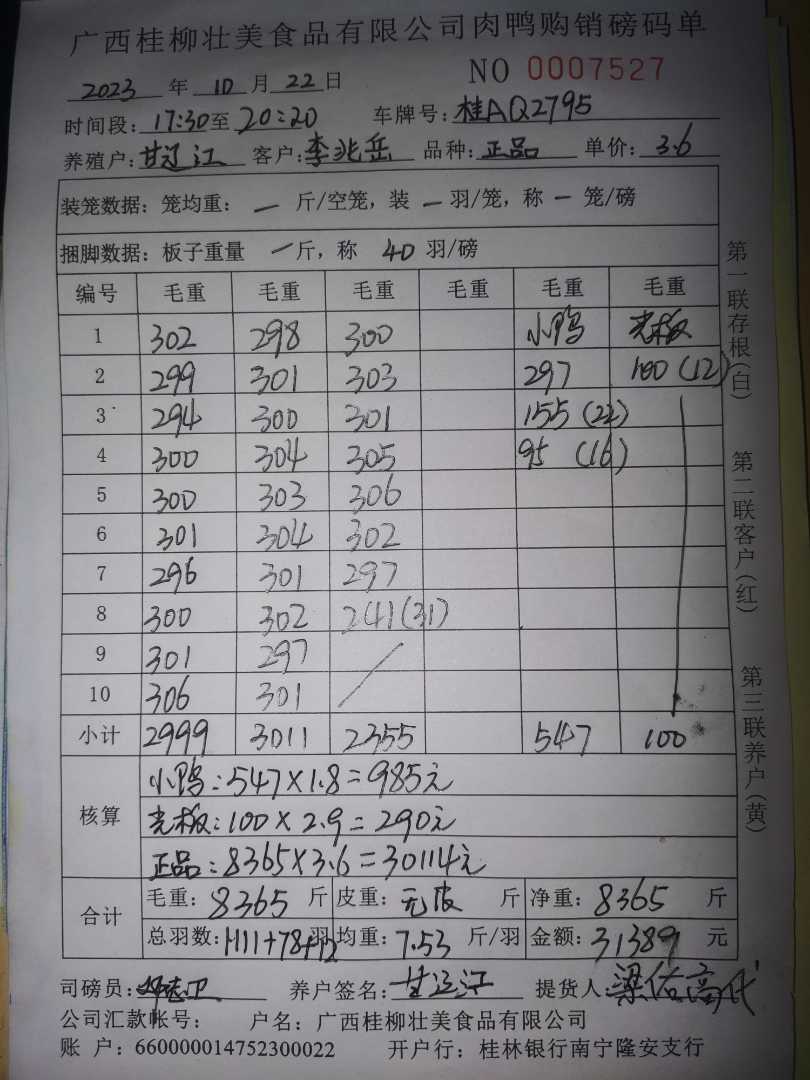 广西桂柳壮美食品有限公司肉鸭购销磅码单
NO 0007527
2023 年 10 月 22 日
时间段: 17:30至 20:20 车牌号: 桂AQ2795
养殖户: 甘辺江 客户: 李兆岳 品种: 正品 单价: 3.6
装笼数据: 笼均重: — 斤/空笼, 装 — 羽/笼, 称 — 笼/磅
捆脚数据: 板子重量 — 斤, 称 40 羽/磅
编号 毛重 毛重 毛重 毛重 毛重 毛重
1 302 298 300 小鸭 光板
2 299 301 303 297 100 (12)
3 294 300 301 155 (22)
4 300 304 305 95 (16)
5 300 303 306
6 301 304 302
7 296 301 297
8 300 302 241(31)
9 301 297
10 306 301
小计 2999 3011 2355 547 100
核算
小鸭: 547×1.8=985元
光板: 100×2.9=290元
正品: 8365×3.6=30114元
合计
毛重: 8365 斤 皮重: 无皮 斤 净重: 8365 斤
总羽数: 1111+78+12 羽 均重: 7.53 斤/羽 金额: 31389 元
司磅员: 养户签名: 甘辺江 提货人: 梁佑高代
公司汇款帐号: 户名: 广西桂柳壮美食品有限公司
账 户: 660000014752300022 开户行: 桂林银行南宁隆安支行
第一联存根(白)
第二联客户(红)
第三联养户(黄)